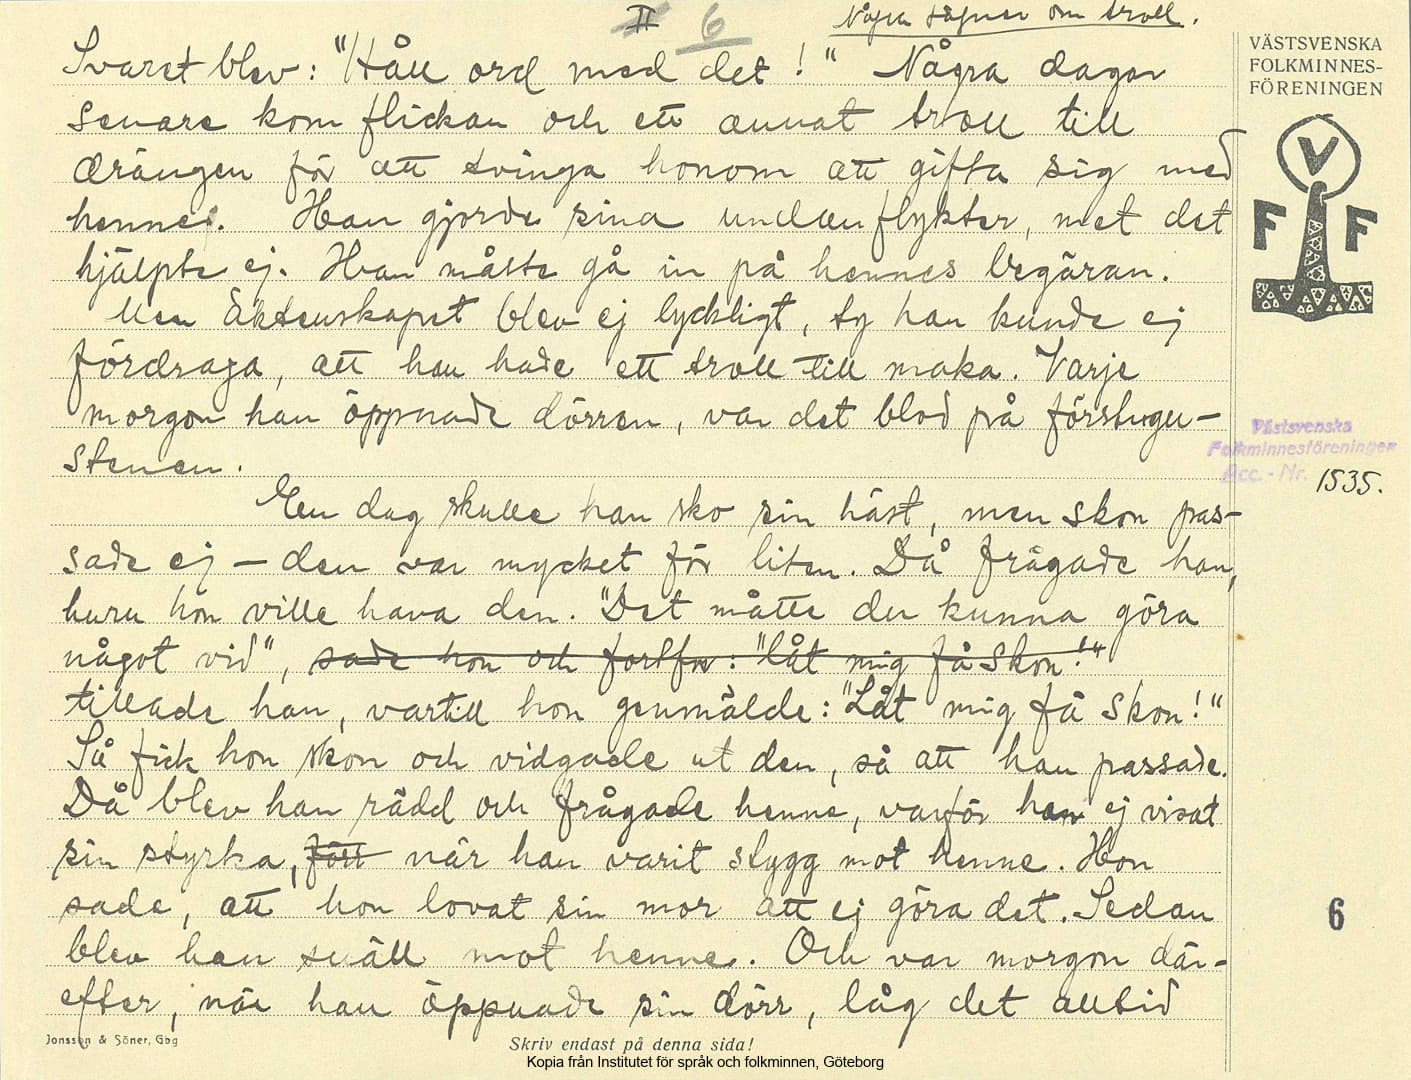 II 6
Några sägner om troll.
Svaret blev: "Håll ord med det!" Några dagar
senare kom flickan och ett annat troll till
drängen för att tvinga honom att gifta sig med
henne. Han gjorde sina undanflykter, met det
hjälpte ej. Han måste gå in på hennes begäran.
Men Äktenskapet blev ej lyckligt, ty han kunde ej
fördraga, att han hade ett troll till maka. Varje
morgon han öppnade dörren, var det blod på förstugu-
stenen.
En dag skulle han sko sin häst, men skon pas-
sade ej – den var mycket för liten. Då frågade han,
huru hon ville hava den. "Det måtte du kunna göra
något vid", sade hon och fortfor: "låt mig få skon!"
tillade han, vartill hon genmälde: "Låt mig få skon!"
Så fick hon skon och vidgade ut den, så att han passade.
Då blev han rädd och frågade henne, varför han ej visat
sin styrka, förr när han varit stygg mot henne. Hon
sade, att hon lovat sin mor att ej göra det. Sedan
blev han snäll mot henne. Och var morgon där-
efter, när han öppnade sin dörr, låg det alltid
VÄSTSVENSKA
FOLKMINNES-
FÖRENINGEN
V
F F
Västsvenska
Folkminnesföreningen
Acc.-Nr. 1535.
6
Jonsson & Söner, Gbg
Skriv endast på denna sida!
Kopia från Institutet för språk och folkminnen, Göteborg